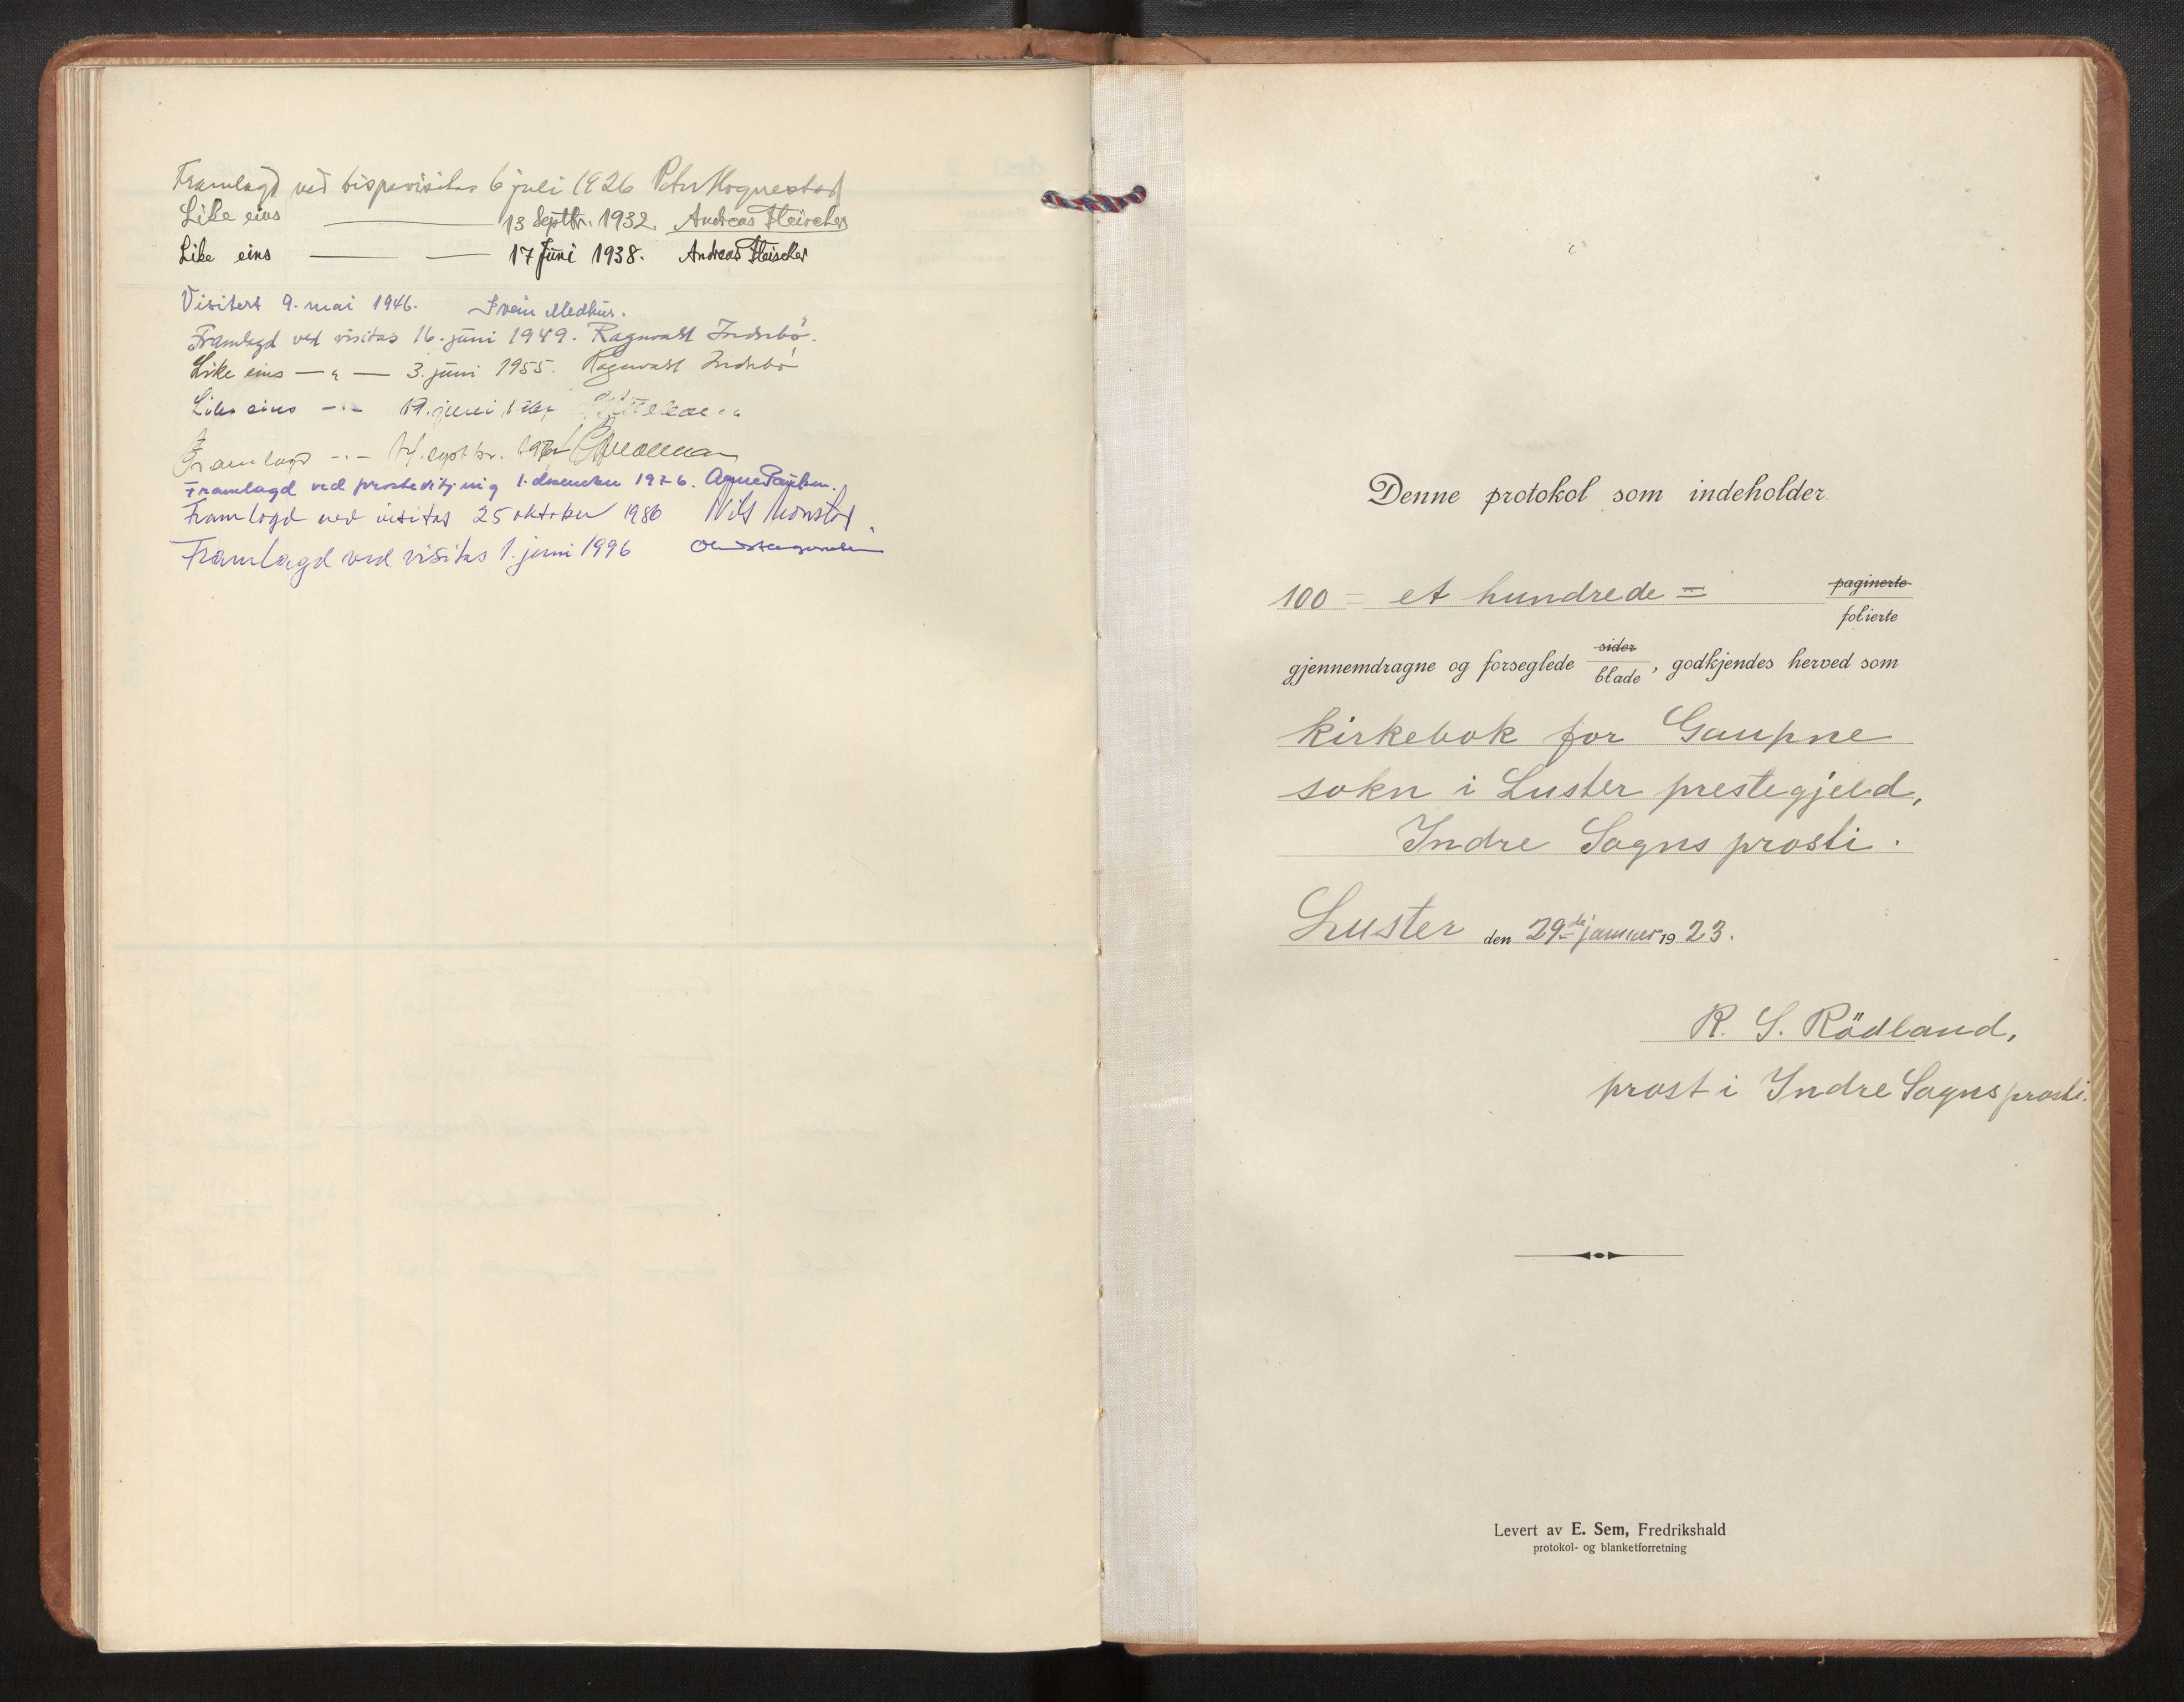 Framlagd ved bispevisitas 6 juli 1926 Peter Hognestad
Like eins 13 Septbr. 1932. Andreas Fleischer
Like eins 17 Juni 1938. Andreas Fleischer
Visitert 9. mai 1946. Svein Medhus.
Framlagd ved visitas 16. juni 1949. Ragnvald Indrebö.
Like eins — " — 3. juni 1955. Ragnvald Indrebö
Like eins — " — 19. juni
Framlagd — " — 14. septbr.
Framlagd ved prostevitjing 1. desember 1976.
Framlagd ved visitas 25 oktober 1986
Framlagd ved visitas 1. juni 1996
Denne protokol som indeholder
100 = et hundrede = paginerte
folierte
gjennemdragne og forseglede sider blade, godkjendes herved som
kirkebok for Gaupne
sokn i Luster prestegjeld,
Indre Sogns prosti.
Luster den 29de januar 1923.
R. S. Rödland,
prost i Indre Sogns prosti.
Levert av E. Sem, Fredrikshald
protokol- og blanketforretning